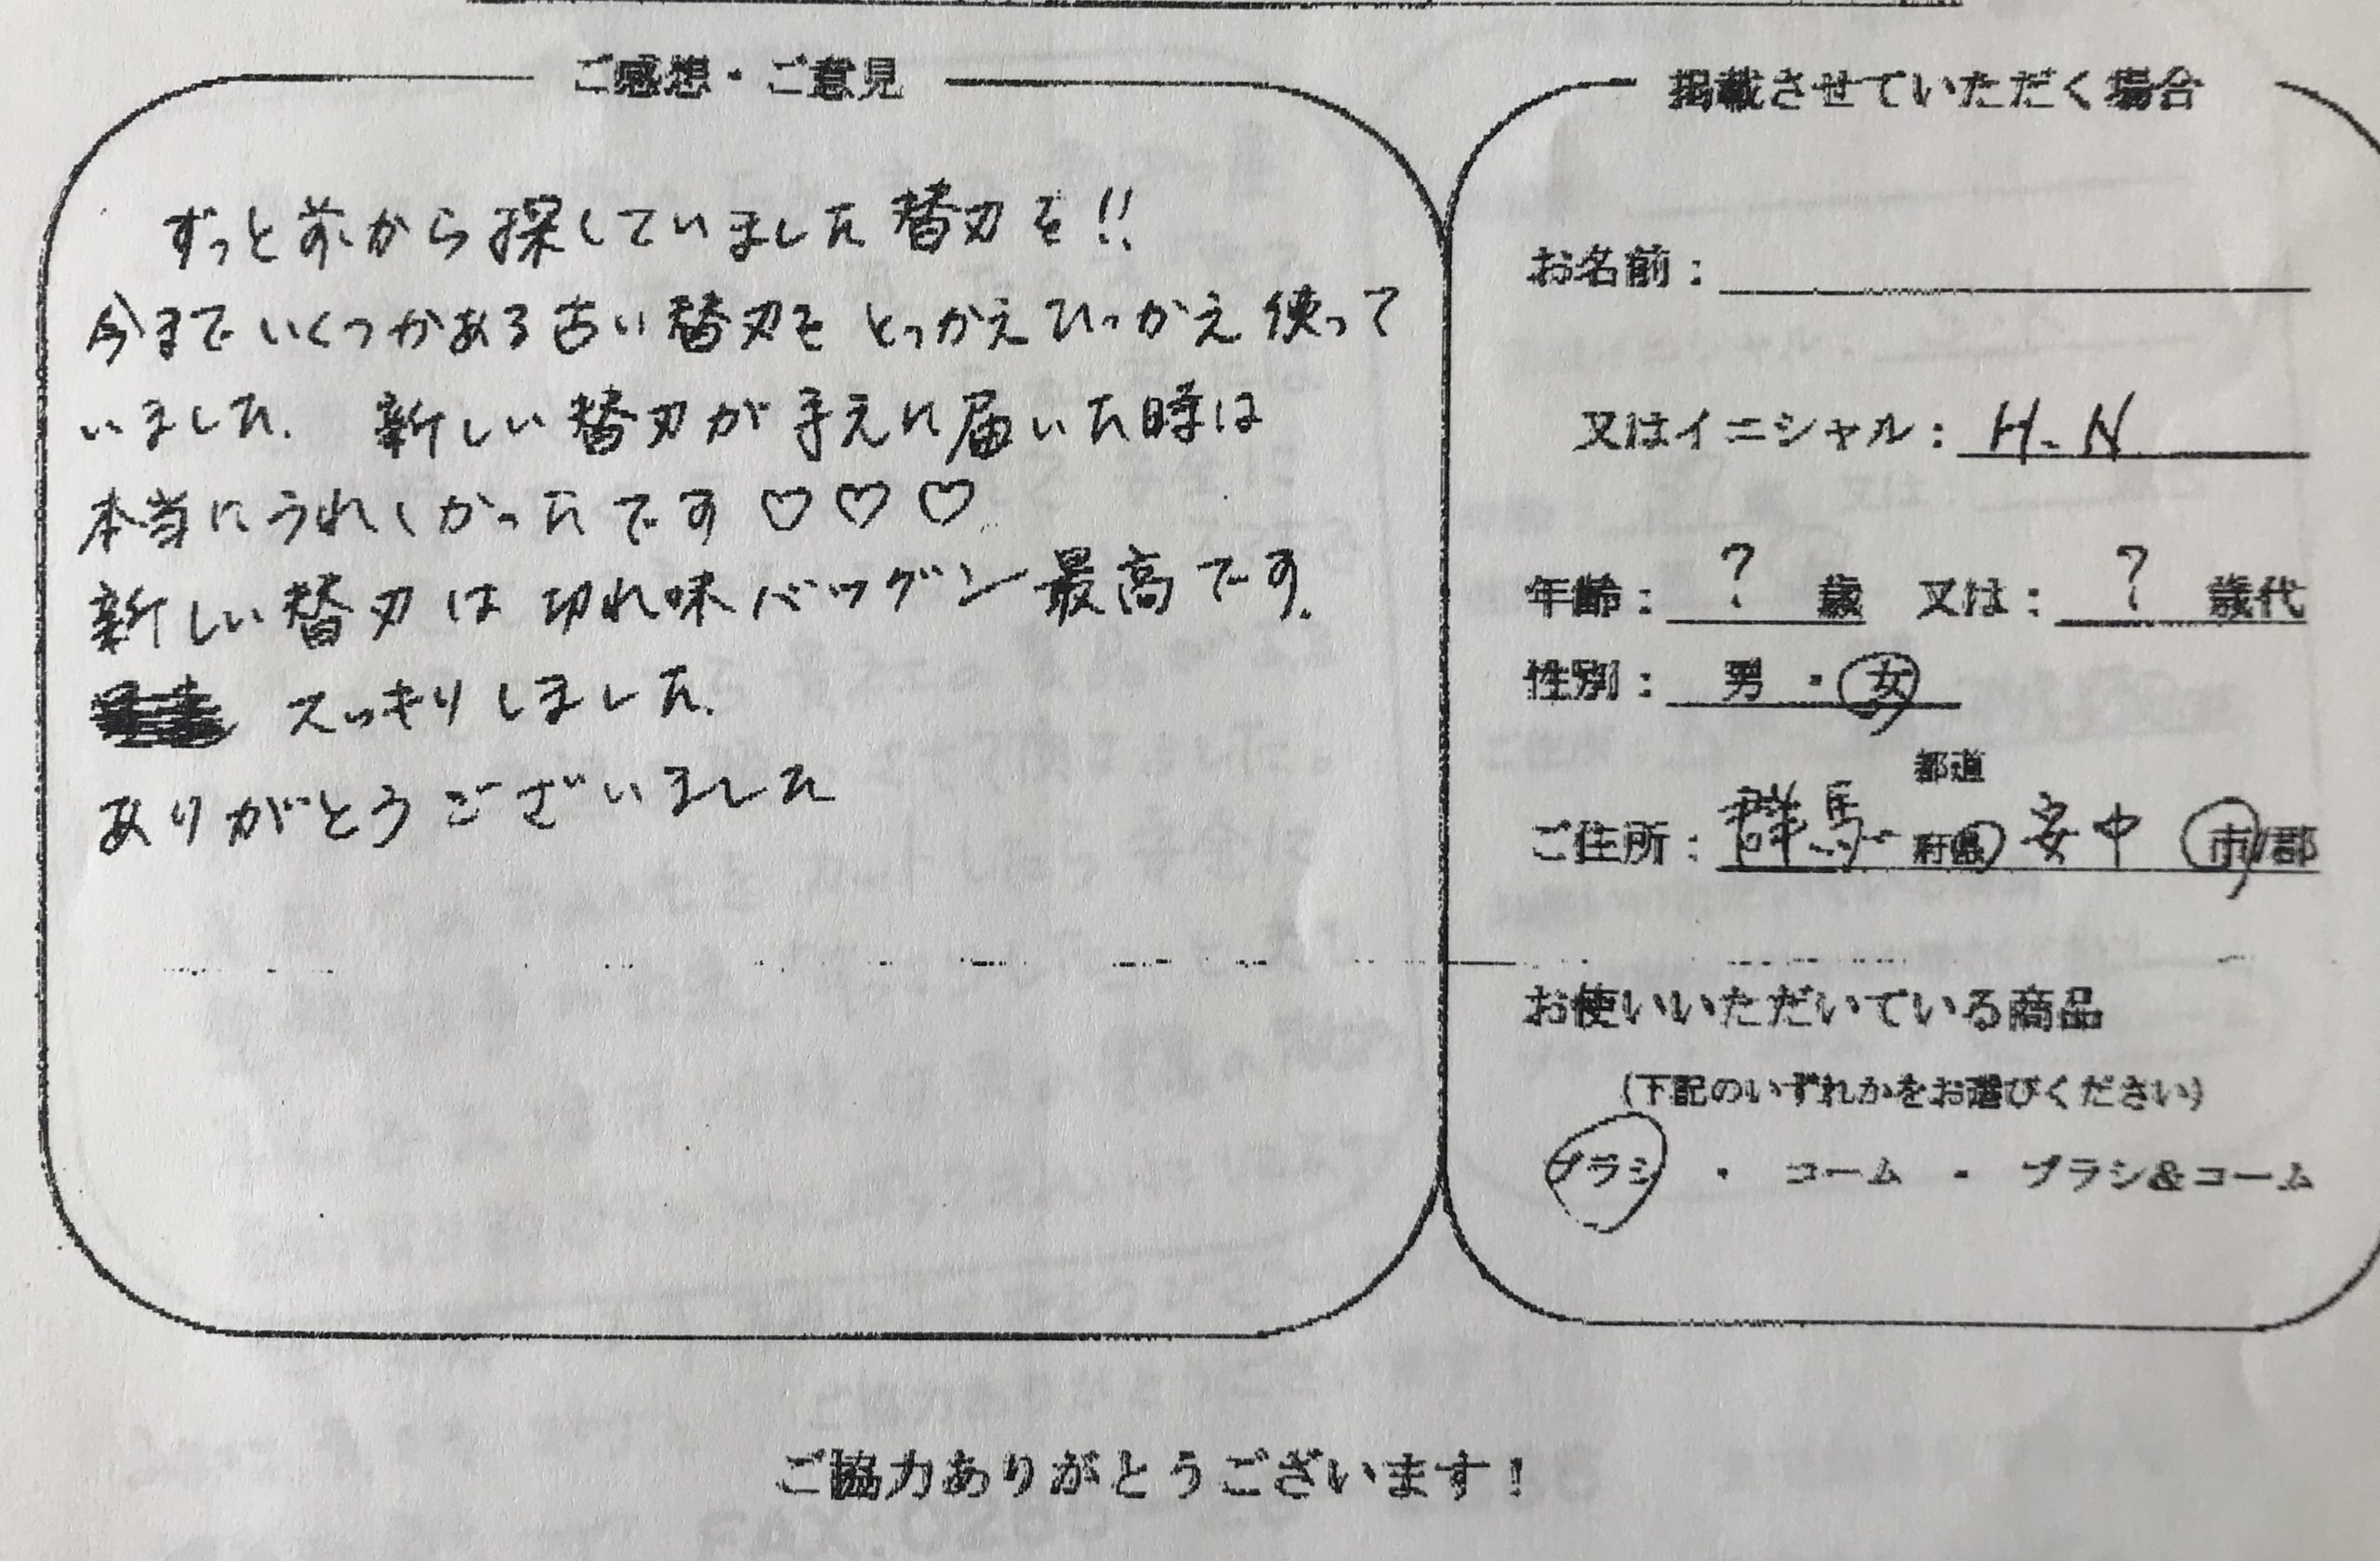 ご感想・ご意見
ずっと前から探していました替刃を!!
今までいくつかある古い替刃をとっかえひっかえ使って
いました. 新しい替刃が手元に届いた時は
本当にうれしかったです♡♡♡
新しい替刃は切れ味バツグン最高です.
スッキリしました.
ありがとうございました
掲載させていただく場合
お名前:
又はイニシャル: H.N
年齢: ? 歳 又は: ? 歳代
性別: 男・女
都道
ご住所: 群馬 府県 安中 市/郡
お使いいただいている商品
(下記のいずれかをお選びください)
ブラシ ・ コーム ・ ブラシ&コーム
ご協力ありがとうございます!